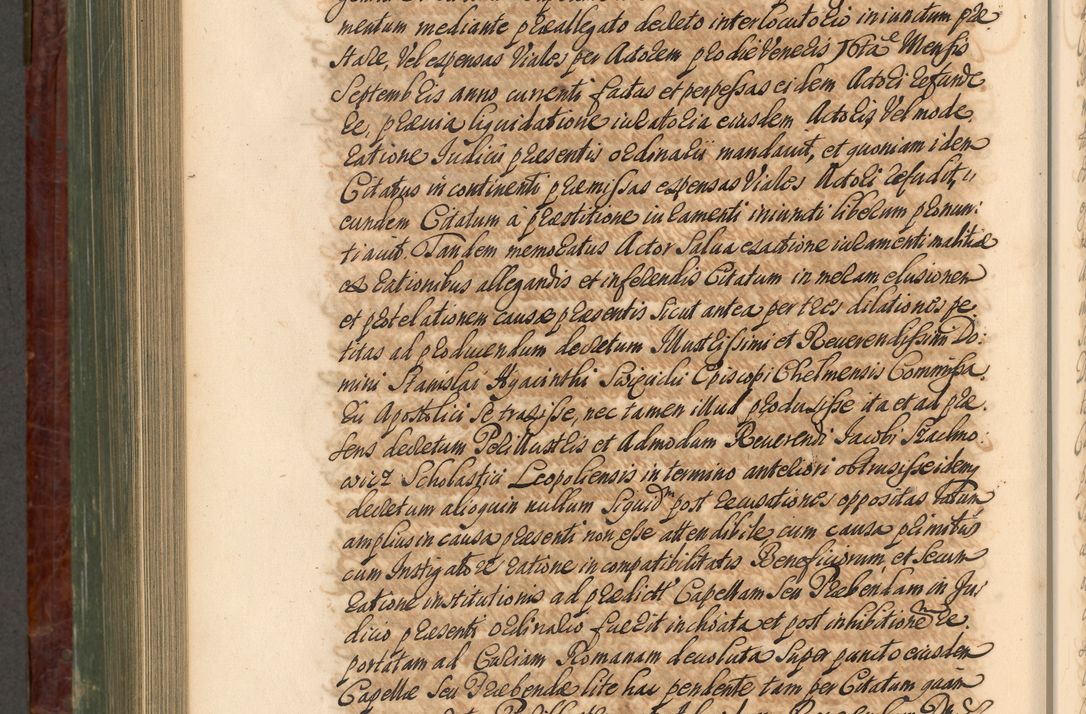 mentum mediante præallegato decreto interlocutorio iniunctum præ-
stare, Vel expensas Viales per Actorem pro die Veneris 16ta Mensis
Septembris anno currenti factas et perpessas eidem Actori refunde
re, prævia liquidatione iuratoria eiusdem Actoris, Vel mode
ratione Judicii præsentis ordinarii mandavit, et quoniam idem
Citatus in continenti præmissas expensas Viales Actori refudit,
eundem Citatum à præstitione iuramenti iniuncti liberum pronun:
tiavit. Tandem memoratus Actor Salva exactione iuramenti malitiæ
ex rationibus allegandis et inferendis Citatum in meram elusionem
et protelationem causæ præsentis sicut antea per tres dilationes pe
titas ad producendum decretum Illustrissimi et Reverendissimi Do:
mini Stanislai Hyacinthi Swięcicki Episcopi Chelmensis Commissa
rii Apostolici se traxisse, nec tamen illud produxisse ita et ad præ
sens decretum Perillustris et Admodum Reverendi Jacobi
Scholastici Leopoliensis in termino anteriori obtrusisse idemq
decretum alioquin nullum post recusationes oppositas latum
amplius in causa præsenti non esse attendibile, cum causa primitus
cum Instigatore ratione incompatibilitatis Beneficiorum et secun
ratione institutionis ad prædict Capellam Seu Præbendam in Ju
dicio præsenti ordinario fuerit inchoata et post inhibitionem re
portatam ad Curiam Romanam devoluta Super puncto eiusdem
Capellæ Seu Præbendæ lite hac pendente tam per Citatum quàm